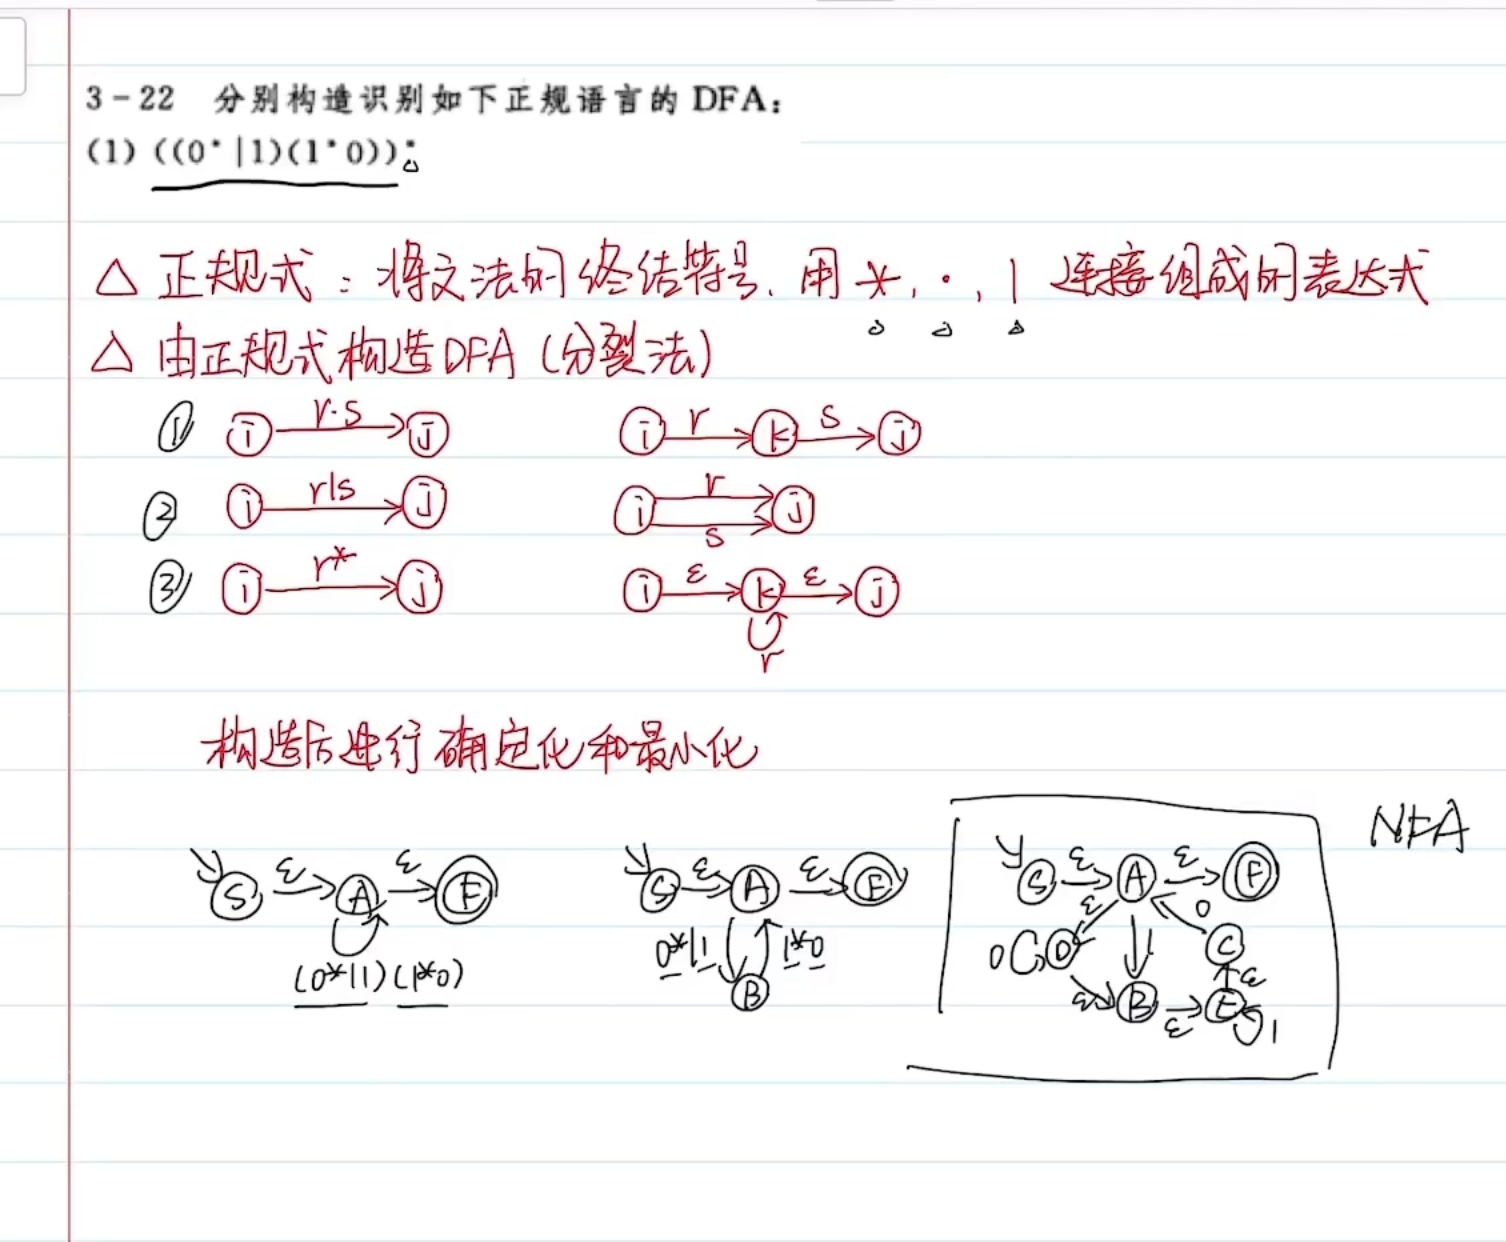 3-22 分别构造识别如下正规语言的 DFA：
(1) ((0*|1)(1*0))*
△ 正规式：将文法的终结符号、用 *, ·, | 连接组成的表达式
△ 由正规式构造DFA (分裂法)
① i r·s j i r k s j
② i r|s j i r s j
③ i r* j i ε k ε j r
构造后进行确定化和最小化
NFA
S ε A ε F (0*|1)(1*0)
S ε A ε F 0*|1 1*0 B
S ε A ε F ε 0 D 1 0 C ε ε B ε E 1